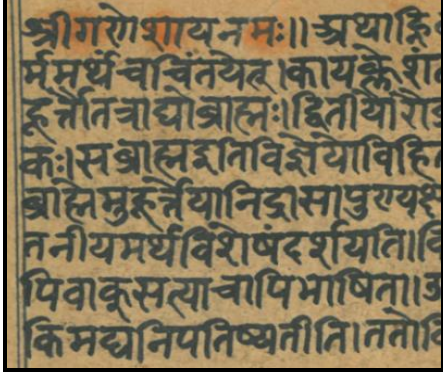 श्रीगणेशायनमः॥अथाह्नि
र्ममर्थंचचिंतयेत्।कायक्लेशां
हूर्त्तौतत्राद्योब्राह्मः।द्वितीयोरौ
कः।सब्राह्मइतिविज्ञेयोविहि
ब्राह्मेमुहूर्त्तेयानिद्रासापुण्यक्ष
तनीयमर्थविशेषंदर्शयति।वि
पिवाक्सत्याचापिभाषिता॥अ
किमद्यनिपतिष्यतीति।ततो